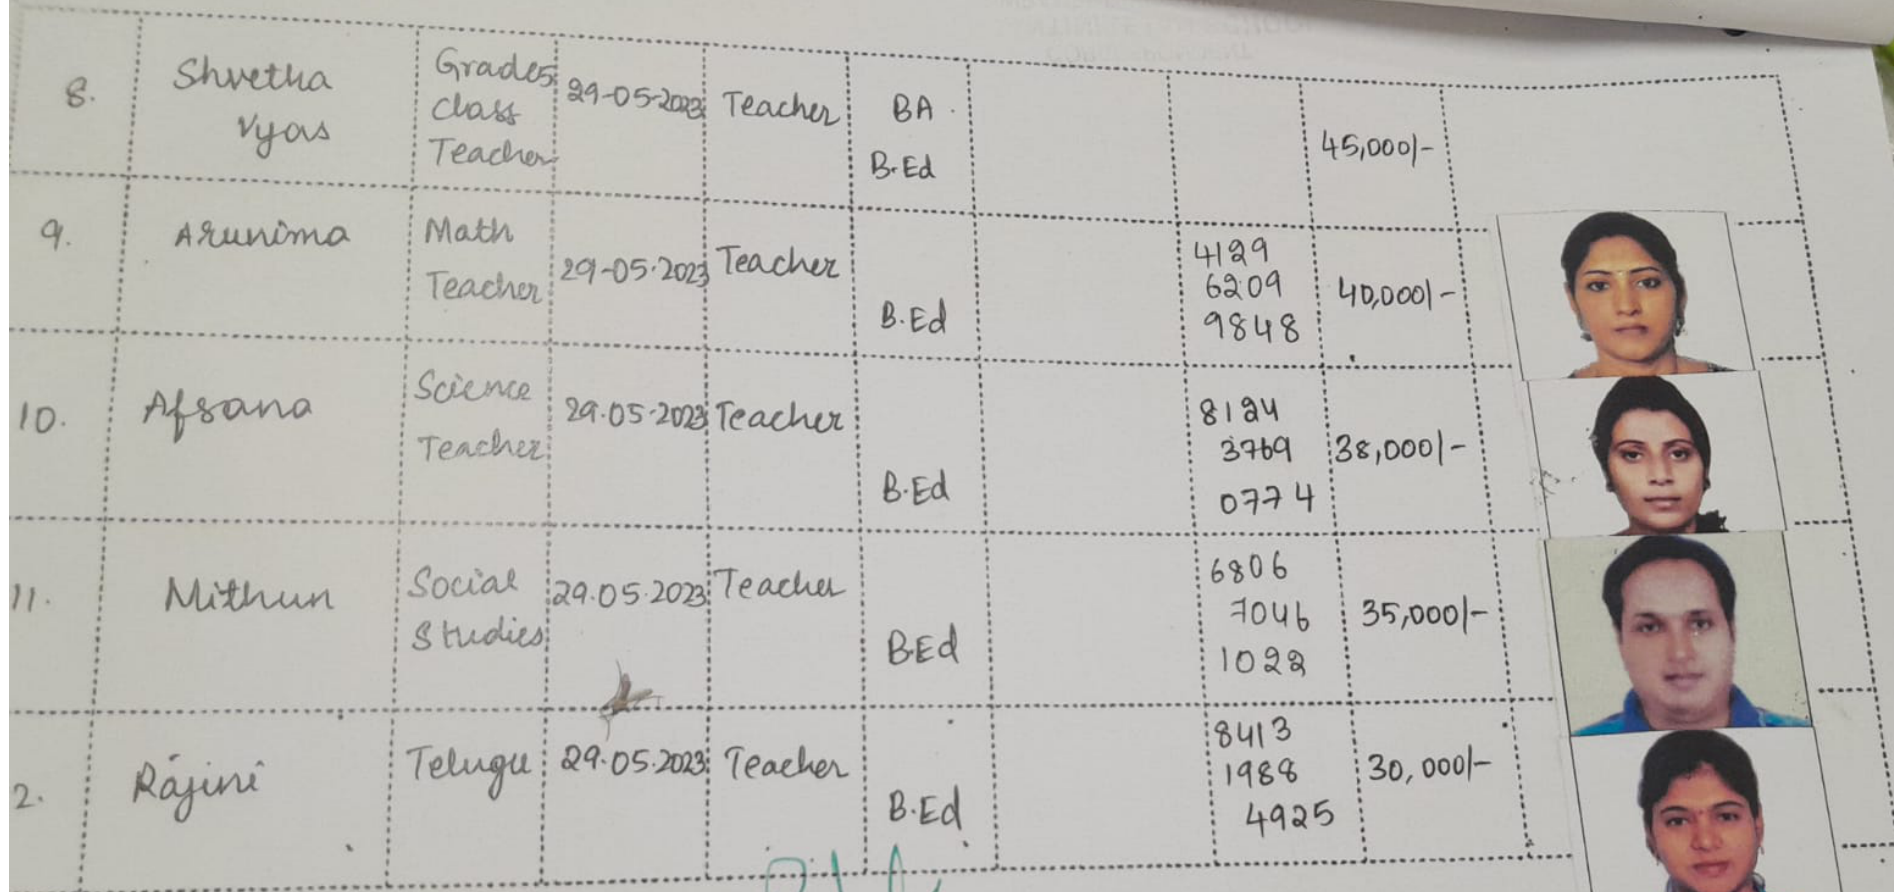 8.
Shvetha
Vyas
Grade5
class
Teacher
29-05-2023
Teacher
BA
B.Ed
45,000/-
9.
Arunima
Math
Teacher
29-05-2023
Teacher
B.Ed
4129
6209
9848
40,000/-
10.
Afsana
Science
Teacher
29.05.2023
Teacher
B.Ed
8124
3769
0774
38,000/-
11.
Mithun
Social
Studies
29.05.2023
Teacher
B.Ed
6806
7046
1022
35,000/-
2.
Rajini
Telugu
29.05.2023
Teacher
B.Ed
8413
1988
4925
30,000/-